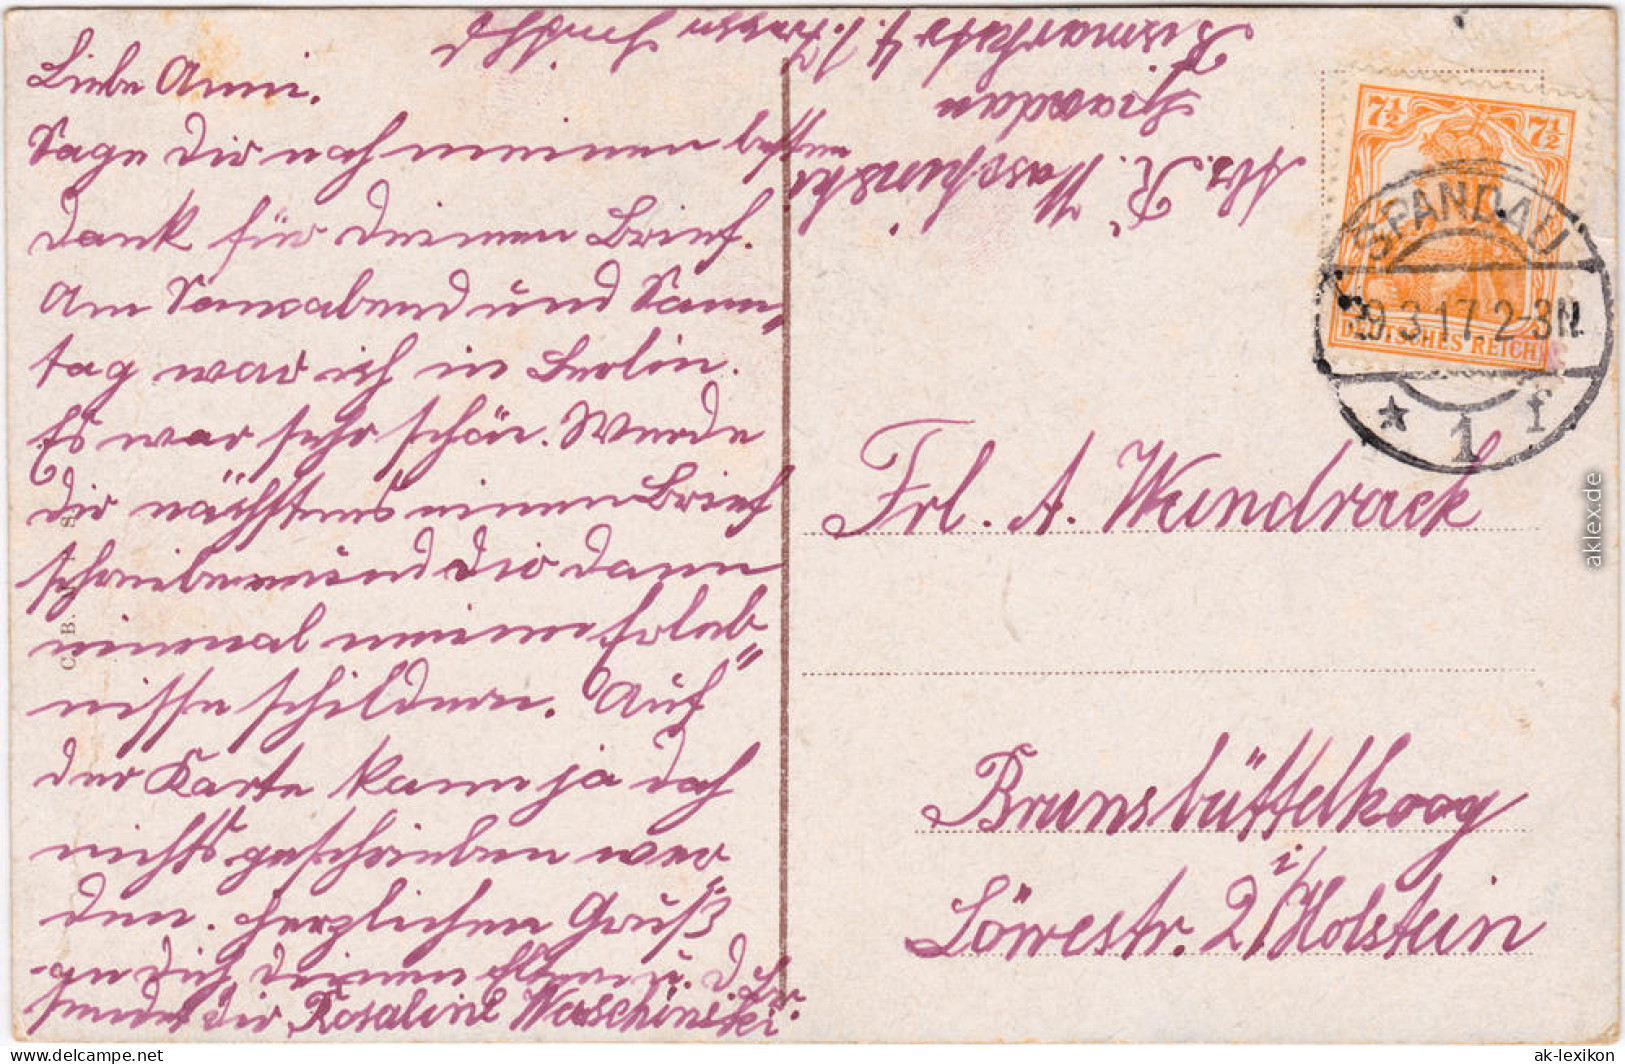 Liebe Anni.
Sage dir noch meinen besten
dank für deinen Brief.
Am Sonnabend und Sonn„
tag war ich in Berlin.
Es war sehr schön. Werde
dir nächstens einen Brief
schreiben und dir dann
einmal meine Erleb„
nisse schildern. Auf
der Karte kann ja doch
nichts geschrieben wer„
den. Herzlichen Gruß
an dich, deinen Eltern u.
sendet dir Rosaline Waschinski.
Abs. R. Waschinski
Spandau
Bismarkstr. 4.
7½ 7½
DEUTSCHES REICH
SPANDAU
29.3.17.2-3N.
* 1 f
Frl. A. Wundrack
Brunsbüttelkoog
i/
Löwestr. 2 Holstein
aklex.de
www.ansichtskarten-lexikon.de
ak-lexikon